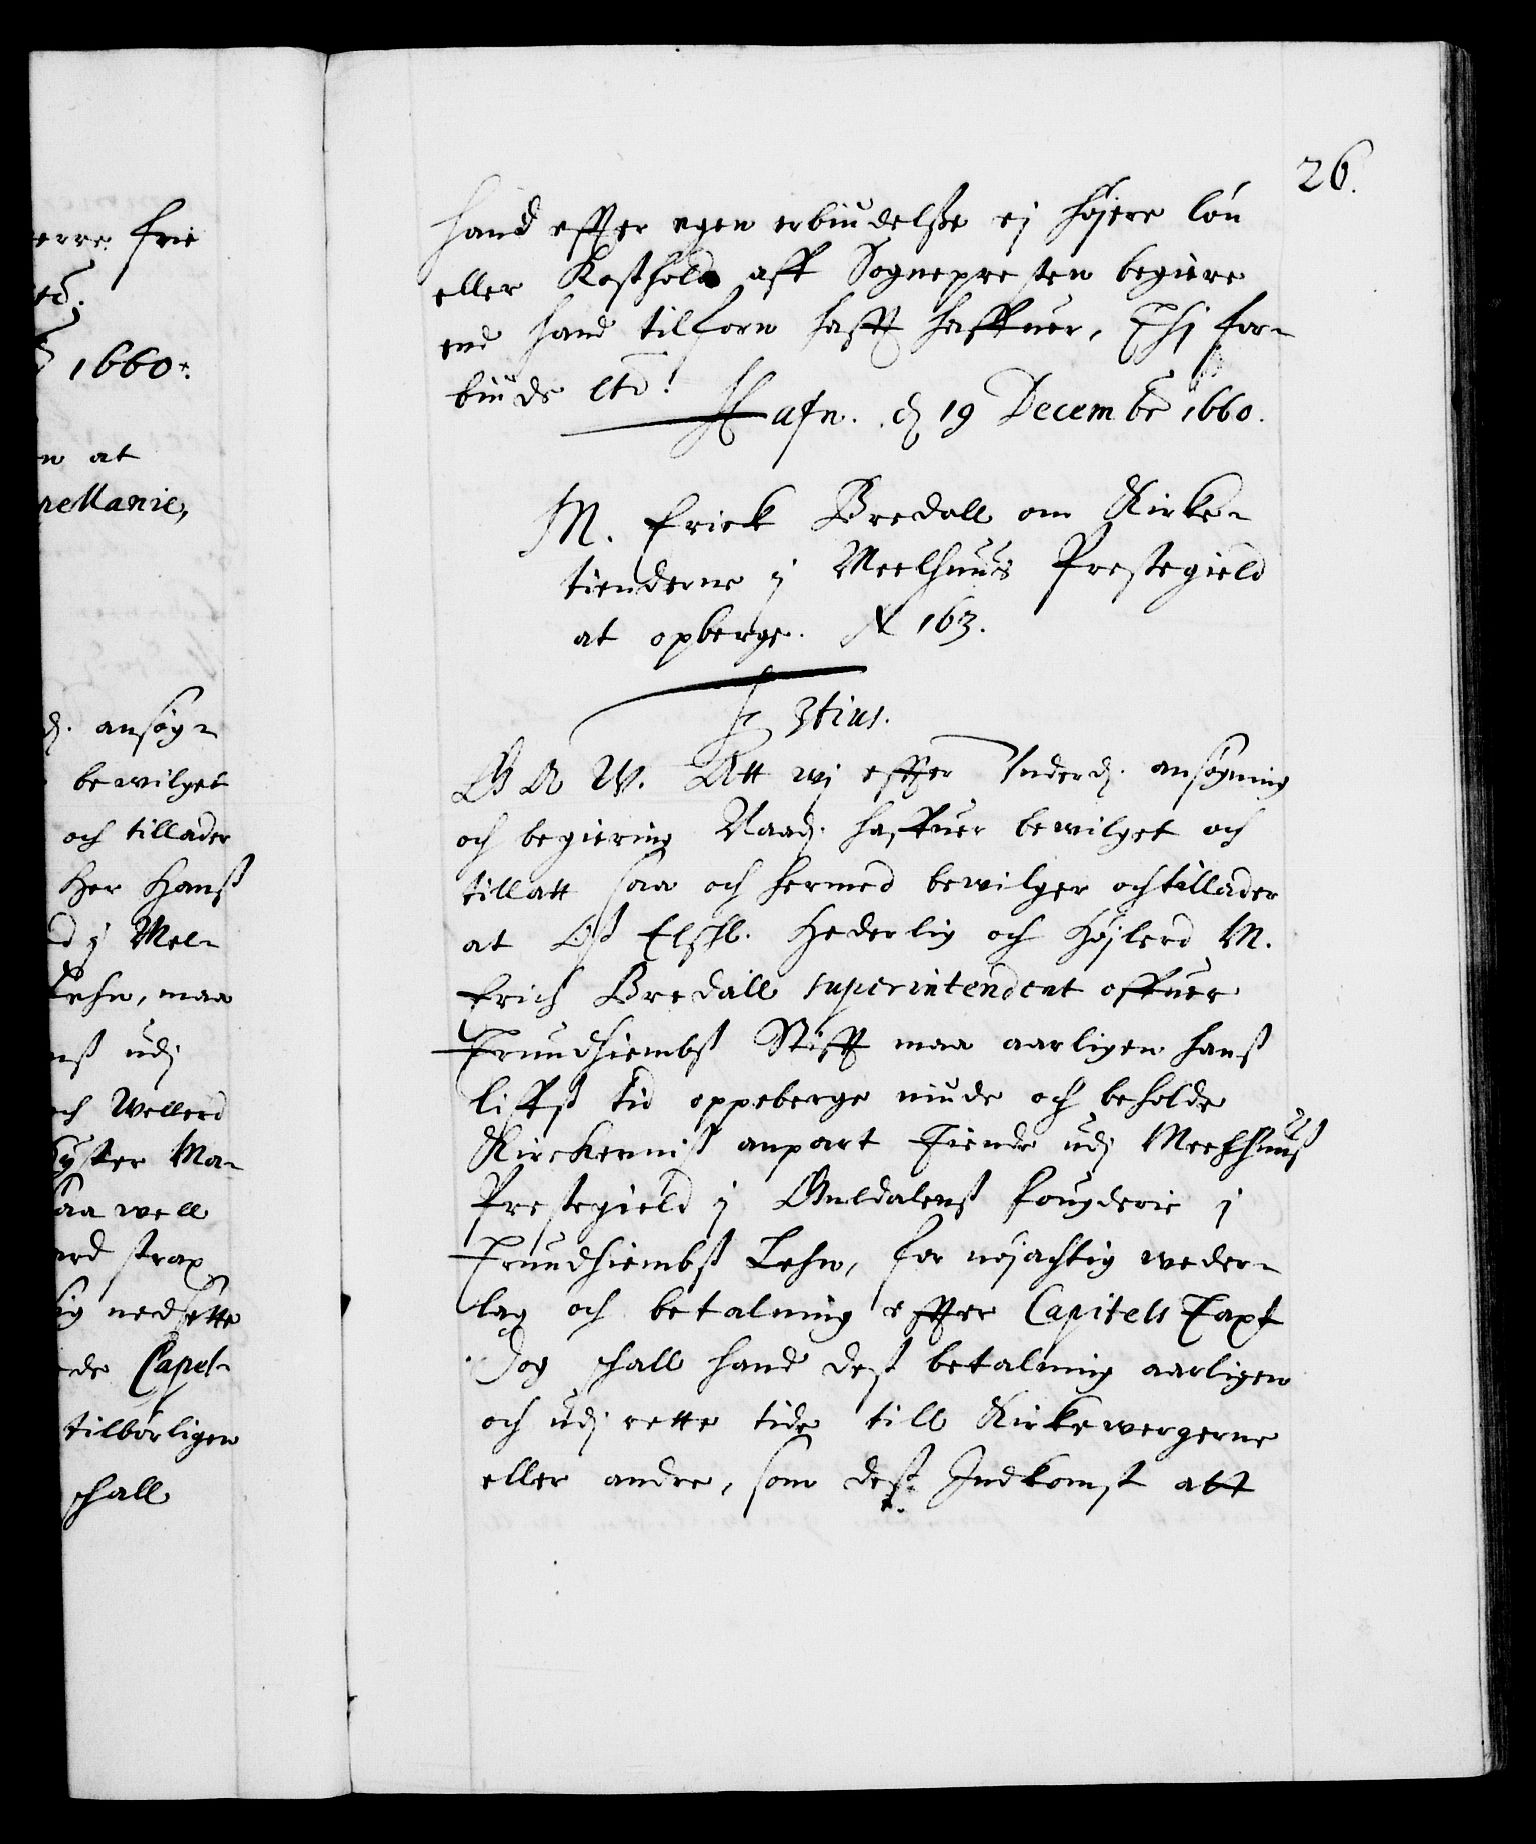 erre frie
etc.
1660.
n at
pellanie,
d. ansøg-
bewilget
och tillader
Her Hanß
d j Mel-
Lehn, maa
nß udj
och Wellerd
Myster Ma-
saa well
ord strax
ig nedsette
de Capel-
tilbørligen
schall
26.
hand effter egen erbiudelße ej højere løn
eller Kosthold aff Sognepresten begiere
end hand tilforn hafft haffuer, Thj for-
biude etc.
Hafn. d 19 Decembr 1660.
M. Erick Bredall om Kirke-
tienderne j Meelhuus Prestegield
at opberge. N 163.
F 3tius.
G A W. Att wj effter Underd. ansøgning
och begiering Naad. haffuer bewilget och
tillatt saa och hermed bewilger och tillader
at Oß Elskl. Hederlig och Højlerd M.
Erich Bredall superintendent offuer
Trundhiembß Stifft maa aarligen hanß
liffß tid oppeberge niude och beholde
Kirckerniß anpart Tiende udj Meelhuuß
Prestegield j Guldalenß fougderie j
Trundhiembß Lehn, for nøjachtig weder-
lag och betalning effter Capitels Taxt
Dog schall hand deß betalning aarligen
och udj rette tide till Kirkewergerne
eller andre, som deß Indkomst att